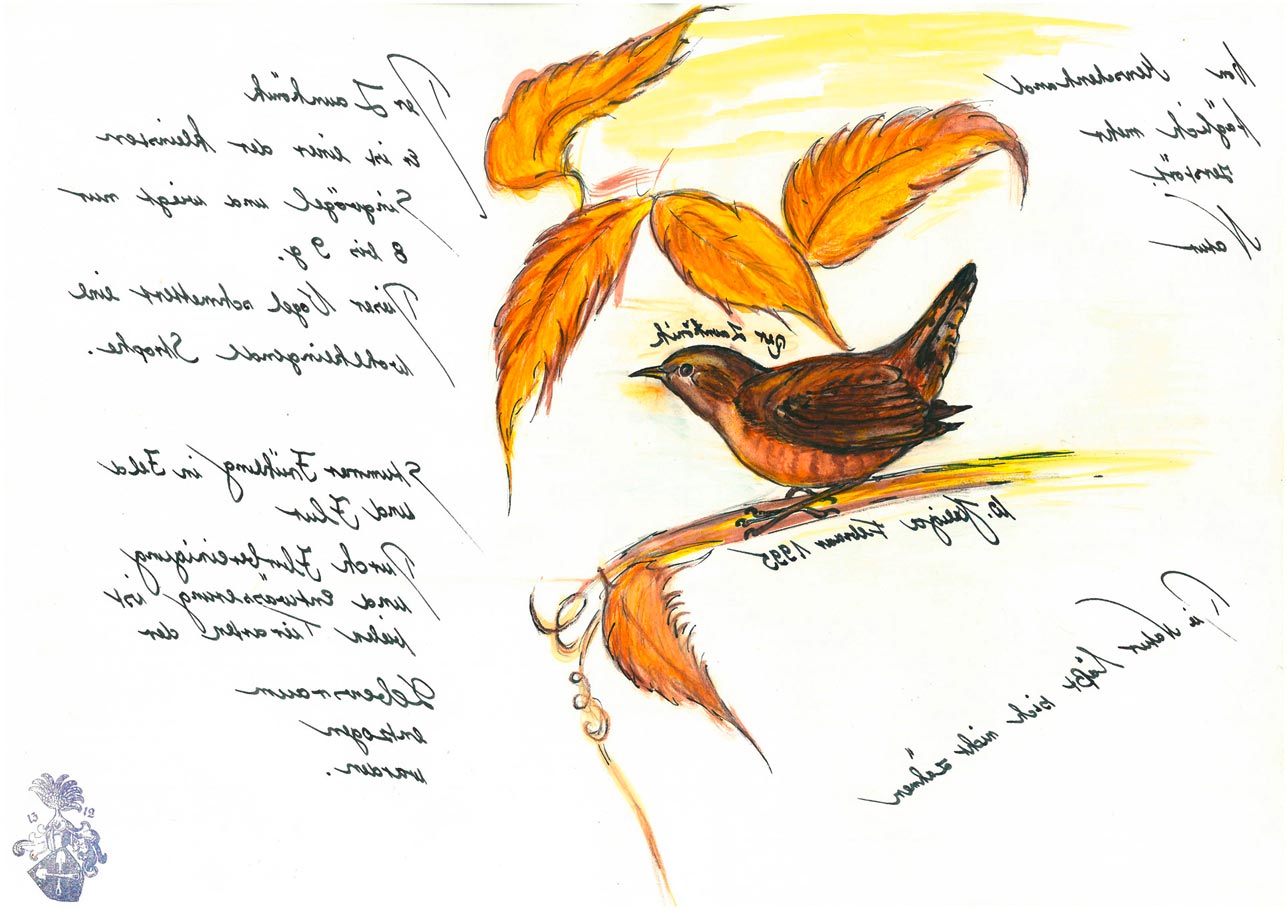 Der Zaunkönik
Er ist einer der kleinsten
Singvögel und wiegt nur
8 bis 9 g.
Dieser Vogel schmettert eine
wohlklingende Strophe.
Stummer Frühling in Feld
und Flur
Durch Flurbereinigung
und Entwässerung ist
vielen Tierarten der
Lebensraum
entzogen
worden.
Von Menschenhand
täglich mehr
zerstört.
Natur
Der Zaunkönik
Februar 1995
Die Natur läßt sich nicht zähmen
13 12